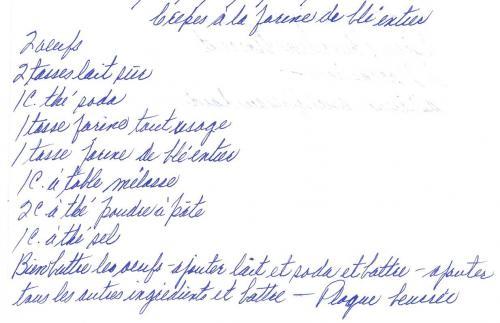 Crêpes à la farine de blé entier
2 oeufs
2 tasses lait sûr
1 C. thé soda
1 tasse farine tout usage
1 tasse farine de blé entier
1 C. à table mélasse
2 C à thé poudre à pâte
1 C. à thé sel
Bien battre les oeufs - ajouter lait et soda et battre - ajouter
tous les autres ingrédients et battre - Plaque beurrée